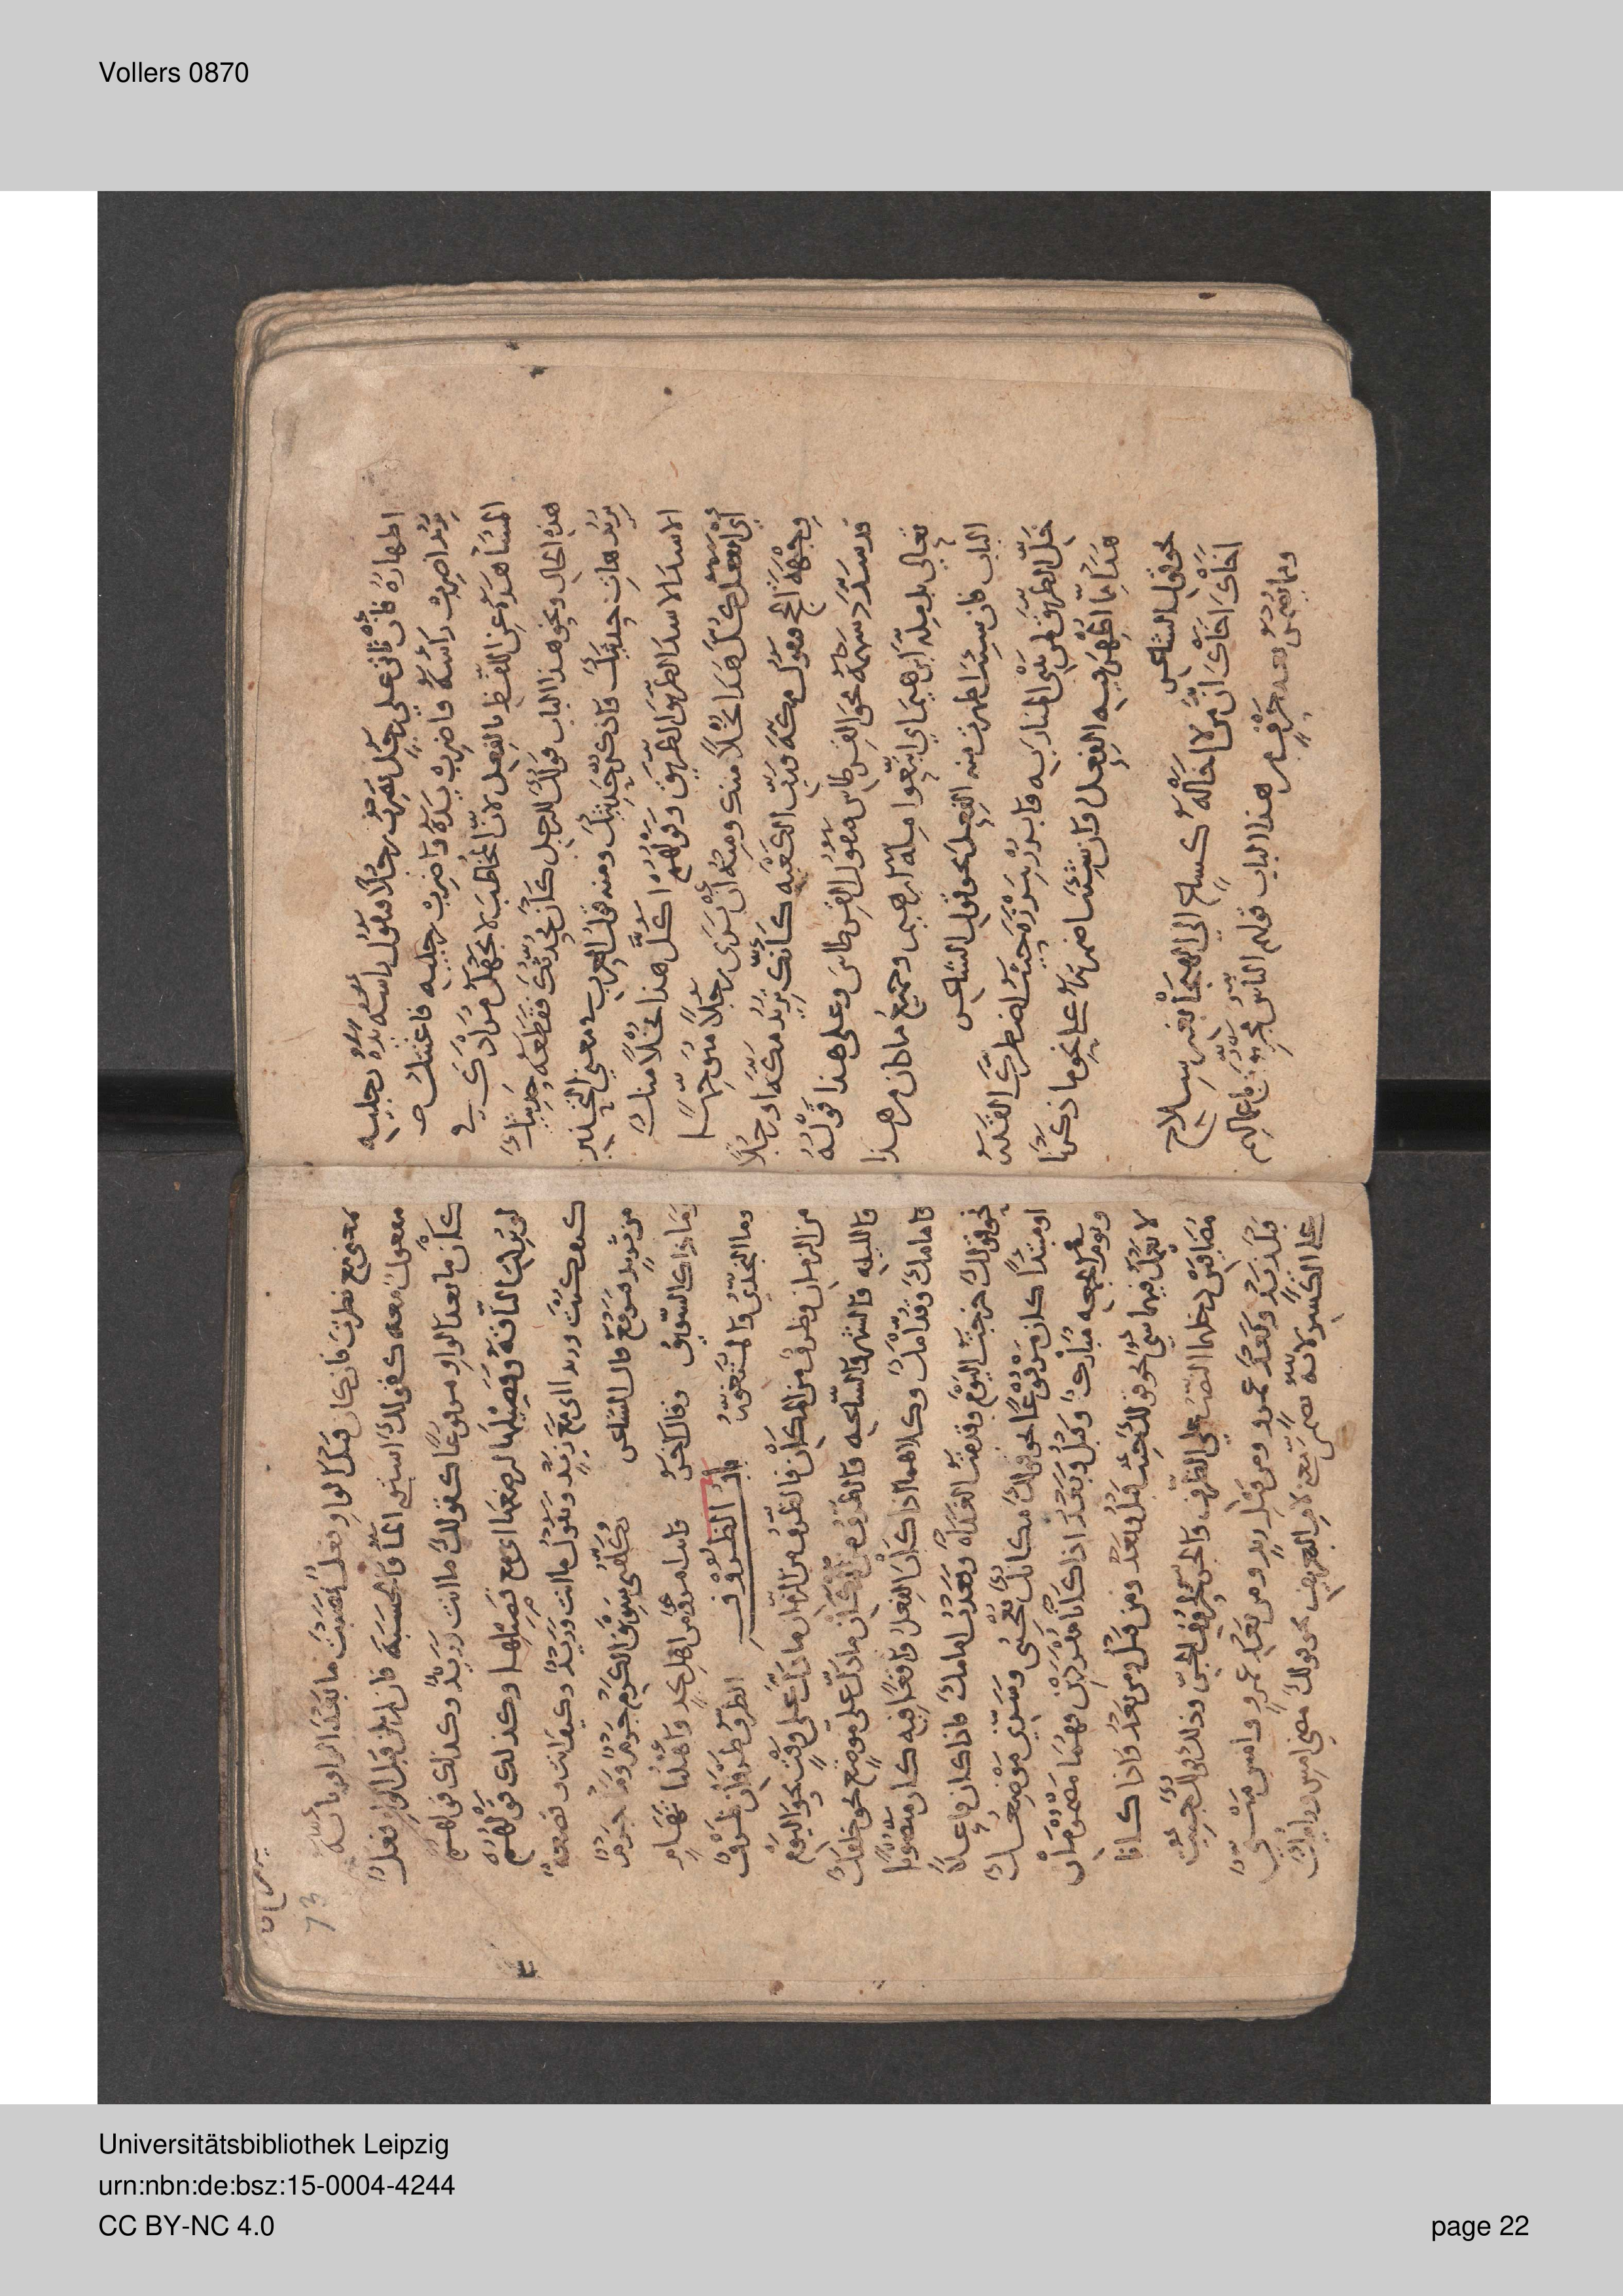 Vollers 0870
اظهاره فان تاتى على رجل يضرب رجلا فتقول راسه يده رجليه
تريد اضرب راسه واضرب يده واضرب رجليه فاغنتك
المشاهدة عن اللفظ بالفعل لان المخاطب لا يجهل مرادك في
هذه الحال ونحو هذا الباب قولك للرجل كان يحدثك فقطعه حديثك
تريد هات حديثك واذكر حديثك ومنه قول العرب في معنى التحذير
الاسد الاسد الطريق الطريق وقولهم اكل هذا بخلا منك
اي اتفعل كل هذا بخلا منك ومنه ان ترى رجلا متوجها
وجهة الحج فتقول مكة ورب الكعبة كانك تريد مكة او رجلا
قد سدد سهمه نحو القرطاس فتقول القرطاس وعلى هذا قوله
تعالى بل ملة ابرهيم اي اتبعوا ملة ابرهيم وجميع ما كان من هذا
الباب فان شئت اظهرت منه الفعل نحو قول الشاعر
خل الطريق لمن يبني المنار به وابرز ببرزة حيث اضطرك القدر
هذا مما اظهر فيه الفعل وان شئت اضمرته على نحو ما ذكرنا
نحو قول الشاعر
اخاك اخاك ان من لا اخا له كساع الى الهيجا بغير سلاح
ومما يضمر بعد حرف من هذا الباب قولهم الناس مجزيون باعمالهم
73
بمعنى مع نظرت فان كان قبل الواو فعل نصبت ما بعد الواو بانه
مفعول معه كقولك استوى الما والخشبة فان لم يكن قبل الواو فعل
كان ما بعد الواو مرفوعا كقولك ما انت وزيد وكذلك قولهم
لو تركت الناقة وفصيلها لرضعها اي مع فصيلها وكذلك قولهم
كيف كنت وزيدا اي مع زيد وتقول ما انت وزيد وكيف انت وقصعة
من ثريد فترفع قال الشاعر
وما ذاك السويق وقال اخر
وما النجدي والمتغور باب الظروف
من الزمان وظرف من المكان فالظرف من الزمان ما دل على وقت نحو اليوم
والليلة والشهر والساعة والظرف من المكان ما دل على موضع نحو خلفك
وامامك وقدامك وكلاهما اذا كان الفعل واقعا فيه كان منصوبا
نحو قولك خرجت اليوم وقدمت الغداة وقعدت امامك فاذا كان فاعلا
او مبتدا كان مرفوعا نحو قولك مكانك يعجبني وسرني موضعك
ويوم الجمعة مبارك وقبل وبعد اذا كانا مفردين فهما مضمومان
لا يعمل فيهما شي نحو قولك جئت قبل وبعد ومن قبل ومن بعد واذا كانا
مضافين دخلهما النصب على الظرف والجر بحروف الجر وذلك قولك جئت
قبل زيد وبعد عمرو ومن قبل زيد ومن بعد عمرو وامس مبني
على الكسر لانه تضمن معنى لام التعريف نحو قولك مضى امس ورايت
Universitätsbibliothek Leipzig
urn:nbn:de:bsz:15-0004-4244
CC BY-NC 4.0
page 22